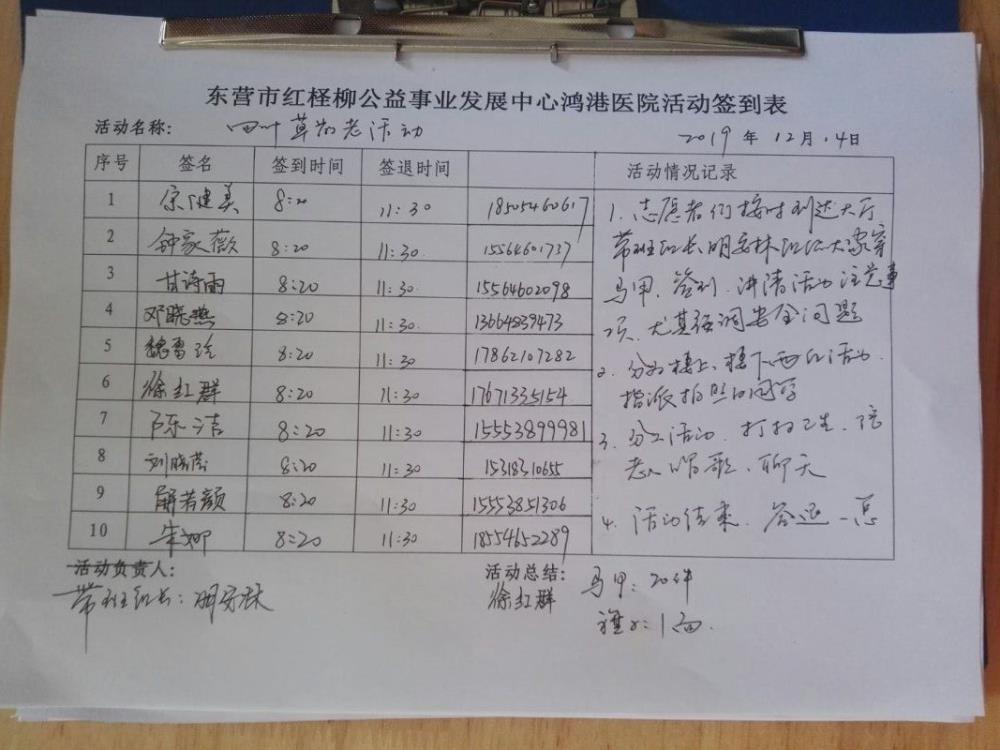 东营市红柽柳公益事业发展中心鸿港医院活动签到表
活动名称： 四叶草为老活动 2019 年 12 月 14 日
序号 签名 签到时间 签退时间 活动情况记录
1 宗健美 8:20 11:30 18505460617
2 钟家薇 8:20 11:30 15564601737
3 甘诗雨 8:20 11:30 15564602098
4 邓晓燕 8:20 11:30 13664839473
5 魏雪 8:20 11:30 17862107282
6 徐红群 8:20 11:30 17671335154
7 陈洁 8:20 11:30 15553899981
8 刘晓 8:20 11:30 15318310655
9 解若颜 8:20 11:30 15553851306
10 朱娜 8:20 11:30 18554652289
1. 志愿者们按时到达大厅
带班班长明安林组织大家穿
马甲、签到、讲清活动注意事
项、尤其强调安全问题
2. 分为楼上、楼下两组活动
指派拍照
3. 分工活动、打扫卫生、陪
老人唱歌、聊天
4. 活动结束、签退
活动负责人：
带班班长：明安林
活动总结：
徐红群
马甲：20件
旗子：1面